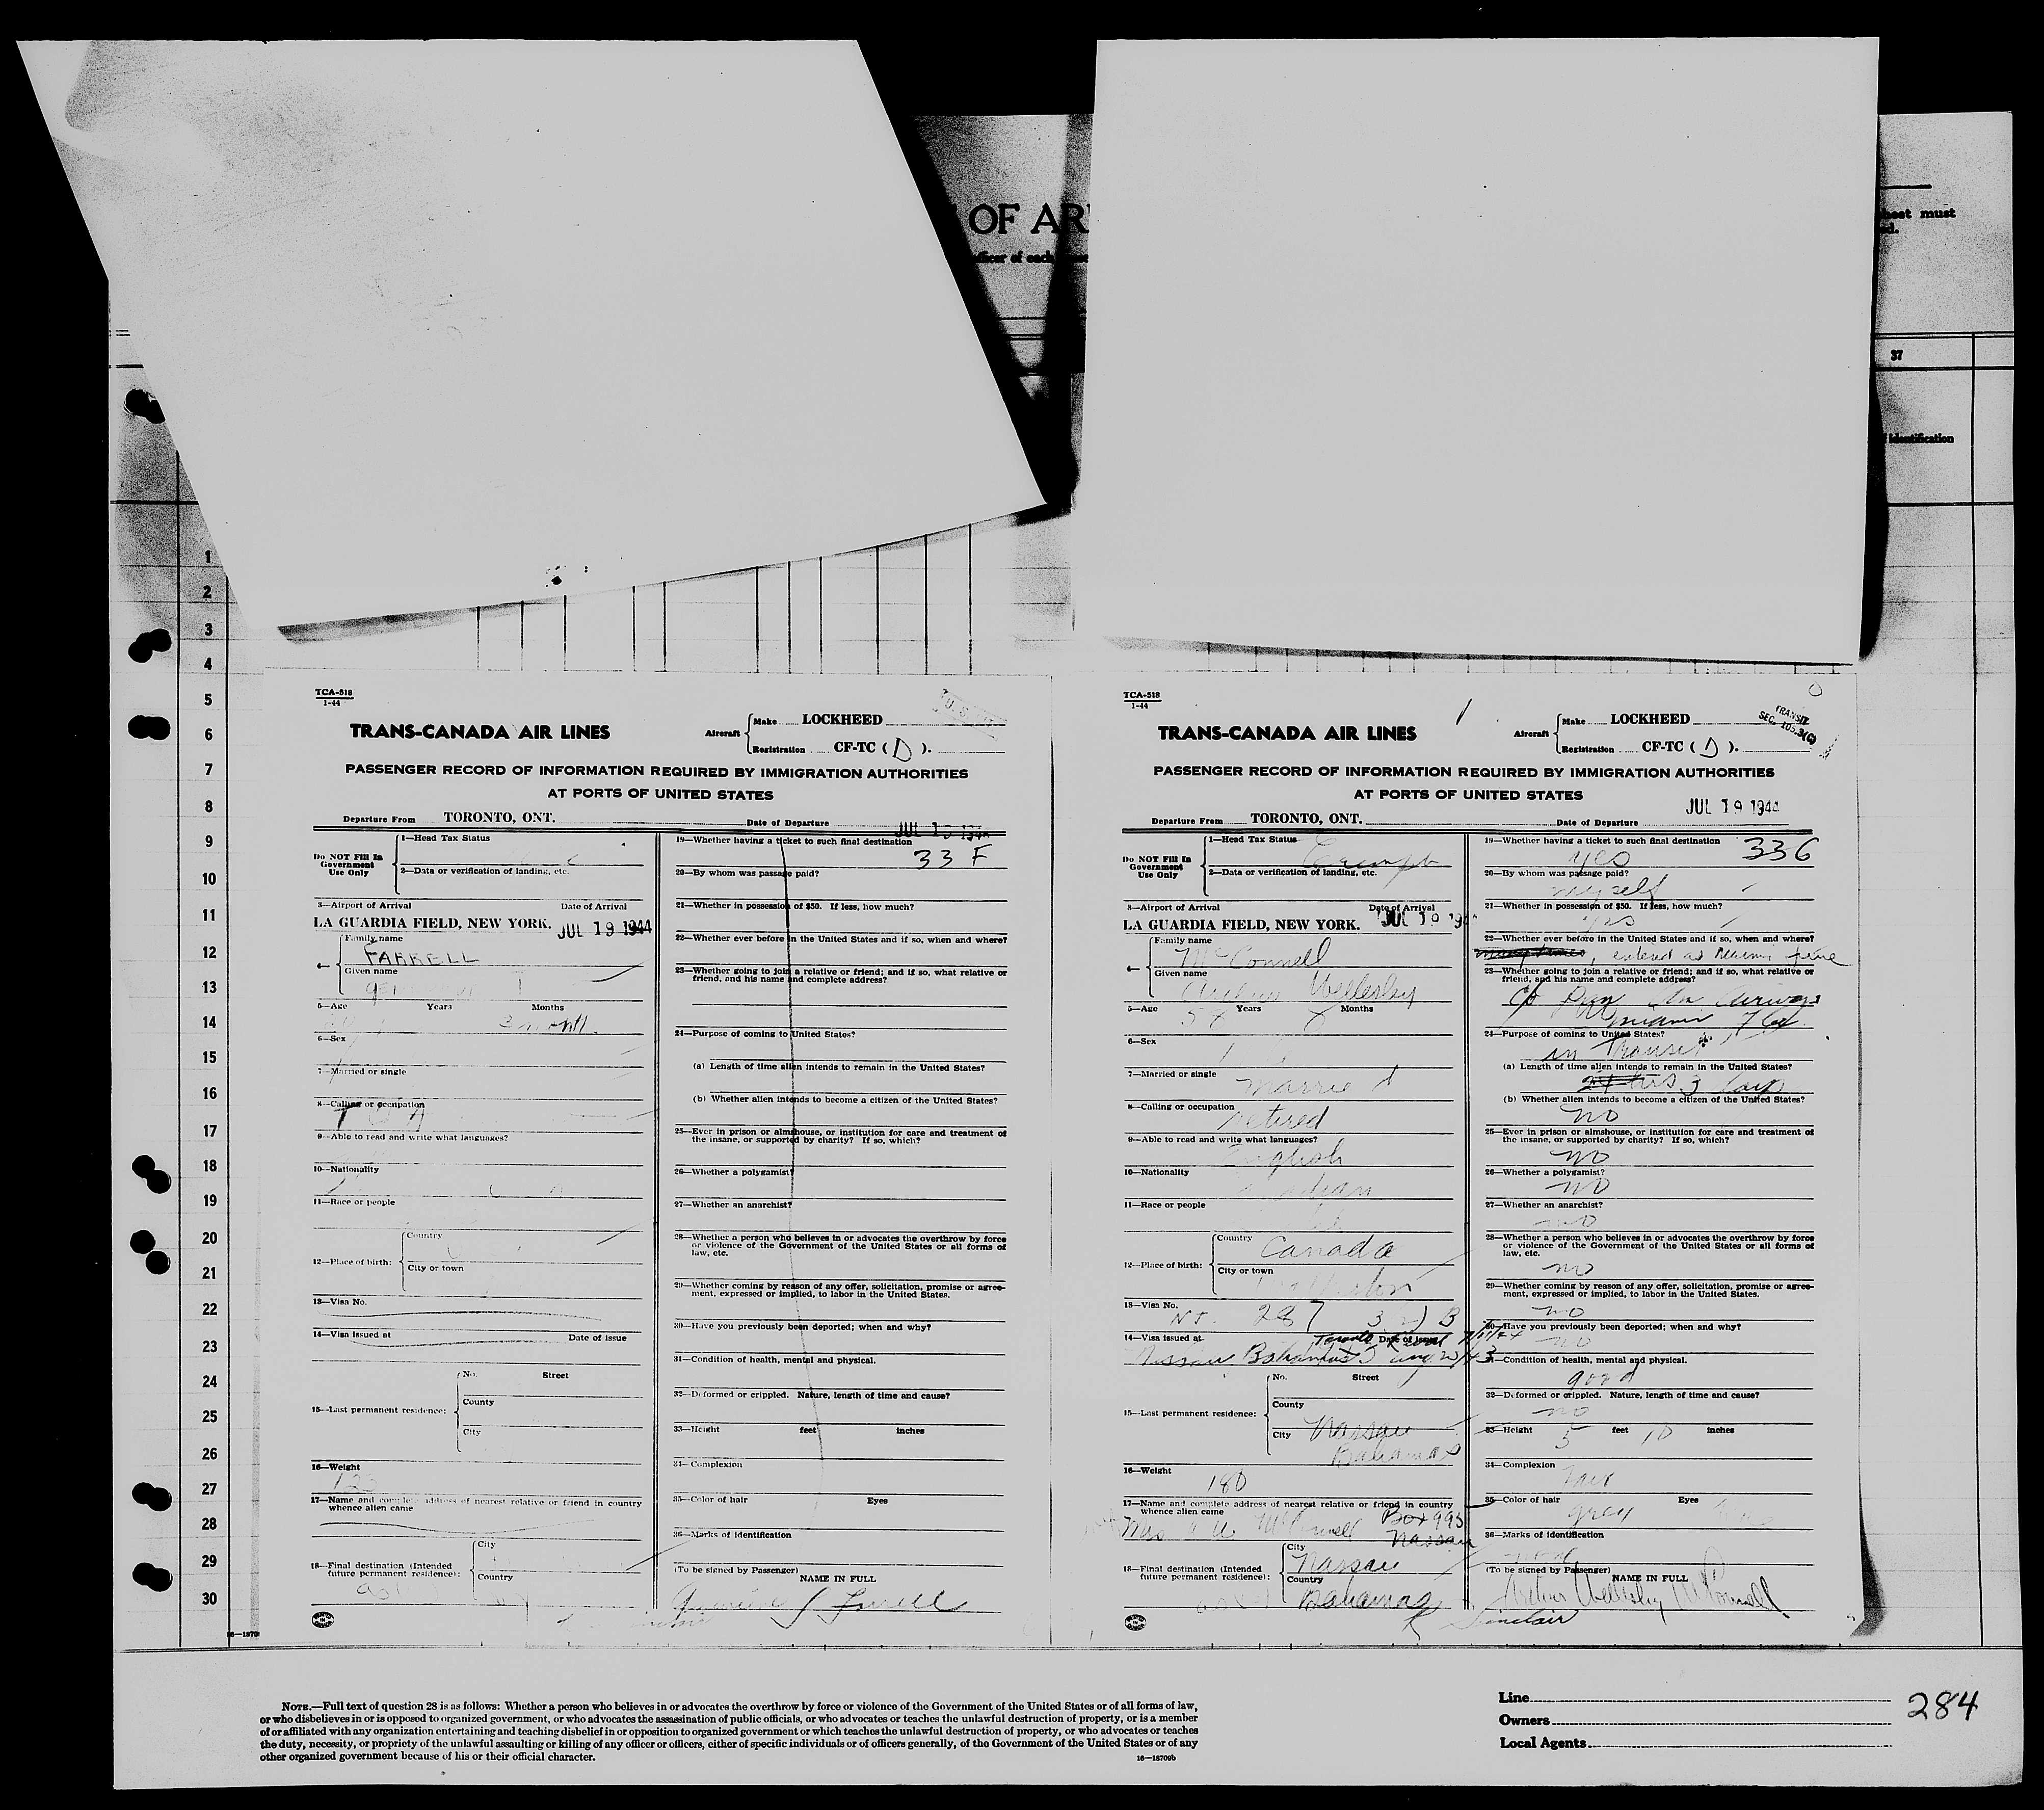 OF AR
officer of each
sheet must
37
Identification
1
2
3
4
5
6
7
8
9
10
11
12
13
14
15
16
17
18
19
20
21
22
23
24
25
26
27
28
29
30
TCA-518
1-44
TRANS-CANADA AIR LINES
Aircraft
Make LOCKHEED
Registration CF-TC ( D ).
PASSENGER RECORD OF INFORMATION REQUIRED BY IMMIGRATION AUTHORITIES
AT PORTS OF UNITED STATES
Departure From TORONTO, ONT. Date of Departure JUL 19 1944
Do NOT Fill In Government Use Only
1—Head Tax Status
2—Data or verification of landing, etc.
3—Airport of Arrival Date of Arrival
LA GUARDIA FIELD, NEW YORK. JUL 19 1944
4—
Family name
FARRELL
Given name
5—Age Years Months
6—Sex
7—Married or single
8—Calling or occupation
9—Able to read and write what languages?
10—Nationality
11—Race or people
12—Place of birth:
Country
City or town
13—Visa No.
14—Visa issued at Date of issue
15—Last permanent residence:
No. Street
County
City
16—Weight
17—Name and complete address of nearest relative or friend in country
whence alien came
18—Final destination (Intended
future permanent residence):
City
Country
19—Whether having a ticket to such final destination
33 F
20—By whom was passage paid?
21—Whether in possession of $50. If less, how much?
22—Whether ever before in the United States and if so, when and where?
23—Whether going to join a relative or friend; and if so, what relative or
friend, and his name and complete address?
24—Purpose of coming to United States?
(a) Length of time alien intends to remain in the United States?
(b) Whether alien intends to become a citizen of the United States?
25—Ever in prison or almshouse, or institution for care and treatment of
the insane, or supported by charity? If so, which?
26—Whether a polygamist?
27—Whether an anarchist?
28—Whether a person who believes in or advocates the overthrow by force
or violence of the Government of the United States or all forms of
law, etc.
29—Whether coming by reason of any offer, solicitation, promise or agree-
ment, expressed or implied, to labor in the United States.
30—Have you previously been deported; when and why?
31—Condition of health, mental and physical.
32—Deformed or crippled. Nature, length of time and cause?
33—Height feet inches
34—Complexion
35—Color of hair Eyes
36—Marks of identification
(To be signed by Passenger)
NAME IN FULL
Farrell
TCA-518
1-44
TRANS-CANADA AIR LINES
Aircraft
Make LOCKHEED
Registration CF-TC ( D ).
TRANSIT
SEC. 105.3(C)
PASSENGER RECORD OF INFORMATION REQUIRED BY IMMIGRATION AUTHORITIES
AT PORTS OF UNITED STATES
Departure From TORONTO, ONT. Date of Departure JUL 19 1944
Do NOT Fill In Government Use Only
1—Head Tax Status
Exempt
2—Data or verification of landing, etc.
3—Airport of Arrival Date of Arrival
LA GUARDIA FIELD, NEW YORK. JUL 19 194
4—
Family name
McConnell
Given name
Arthur Wellesley
5—Age Years Months
6—Sex
7—Married or single
Married
8—Calling or occupation
retired
9—Able to read and write what languages?
English
10—Nationality
11—Race or people
12—Place of birth:
Country
Canada
City or town
13—Visa No.
14—Visa issued at Date of issue
Nassau Bahamas
15—Last permanent residence:
No. Street
County
City Nassau
Bahamas
16—Weight
180
17—Name and complete address of nearest relative or friend in country
whence alien came
Mrs A W McConnell Box 993
Nassau
18—Final destination (Intended
future permanent residence):
City
Nassau
Country
Bahamas
19—Whether having a ticket to such final destination
yes 33G
20—By whom was passage paid?
myself
21—Whether in possession of $50. If less, how much?
yes
22—Whether ever before in the United States and if so, when and where?
many times, entered as
23—Whether going to join a relative or friend; and if so, what relative or
friend, and his name and complete address?
c/o Pan Am Airways
Miami Fla.
24—Purpose of coming to United States?
in Transit
(a) Length of time alien intends to remain in the United States?
24 hrs 3 days
(b) Whether alien intends to become a citizen of the United States?
no
25—Ever in prison or almshouse, or institution for care and treatment of
the insane, or supported by charity? If so, which?
no
26—Whether a polygamist?
no
27—Whether an anarchist?
no
28—Whether a person who believes in or advocates the overthrow by force
or violence of the Government of the United States or all forms of
law, etc.
no
29—Whether coming by reason of any offer, solicitation, promise or agree-
ment, expressed or implied, to labor in the United States.
no
30—Have you previously been deported; when and why?
no
31—Condition of health, mental and physical.
good
32—Deformed or crippled. Nature, length of time and cause?
no
33—Height 5 feet 10 inches
34—Complexion
fair
35—Color of hair Eyes
grey
36—Marks of identification
(To be signed by Passenger)
NAME IN FULL
Arthur Wellesley McConnell
Sinclair
16—1870
NOTE.—Full text of question 28 is as follows: Whether a person who believes in or advocates the overthrow by force or violence of the Government of the United States or of all forms of law,
or who disbelieves in or is opposed to organized government, or who advocates the assassination of public officials, or who advocates or teaches the unlawful destruction of property, or is a member
of or affiliated with any organization entertaining and teaching disbelief in or opposition to organized government or which teaches the unlawful destruction of property, or who advocates or teaches
the duty, necessity, or propriety of the unlawful assaulting or killing of any officer or officers, either of specific individuals or of officers generally, of the Government of the United States or of any
other organized government because of his or their official character.
16—18709b
Line
Owners
Local Agents
284